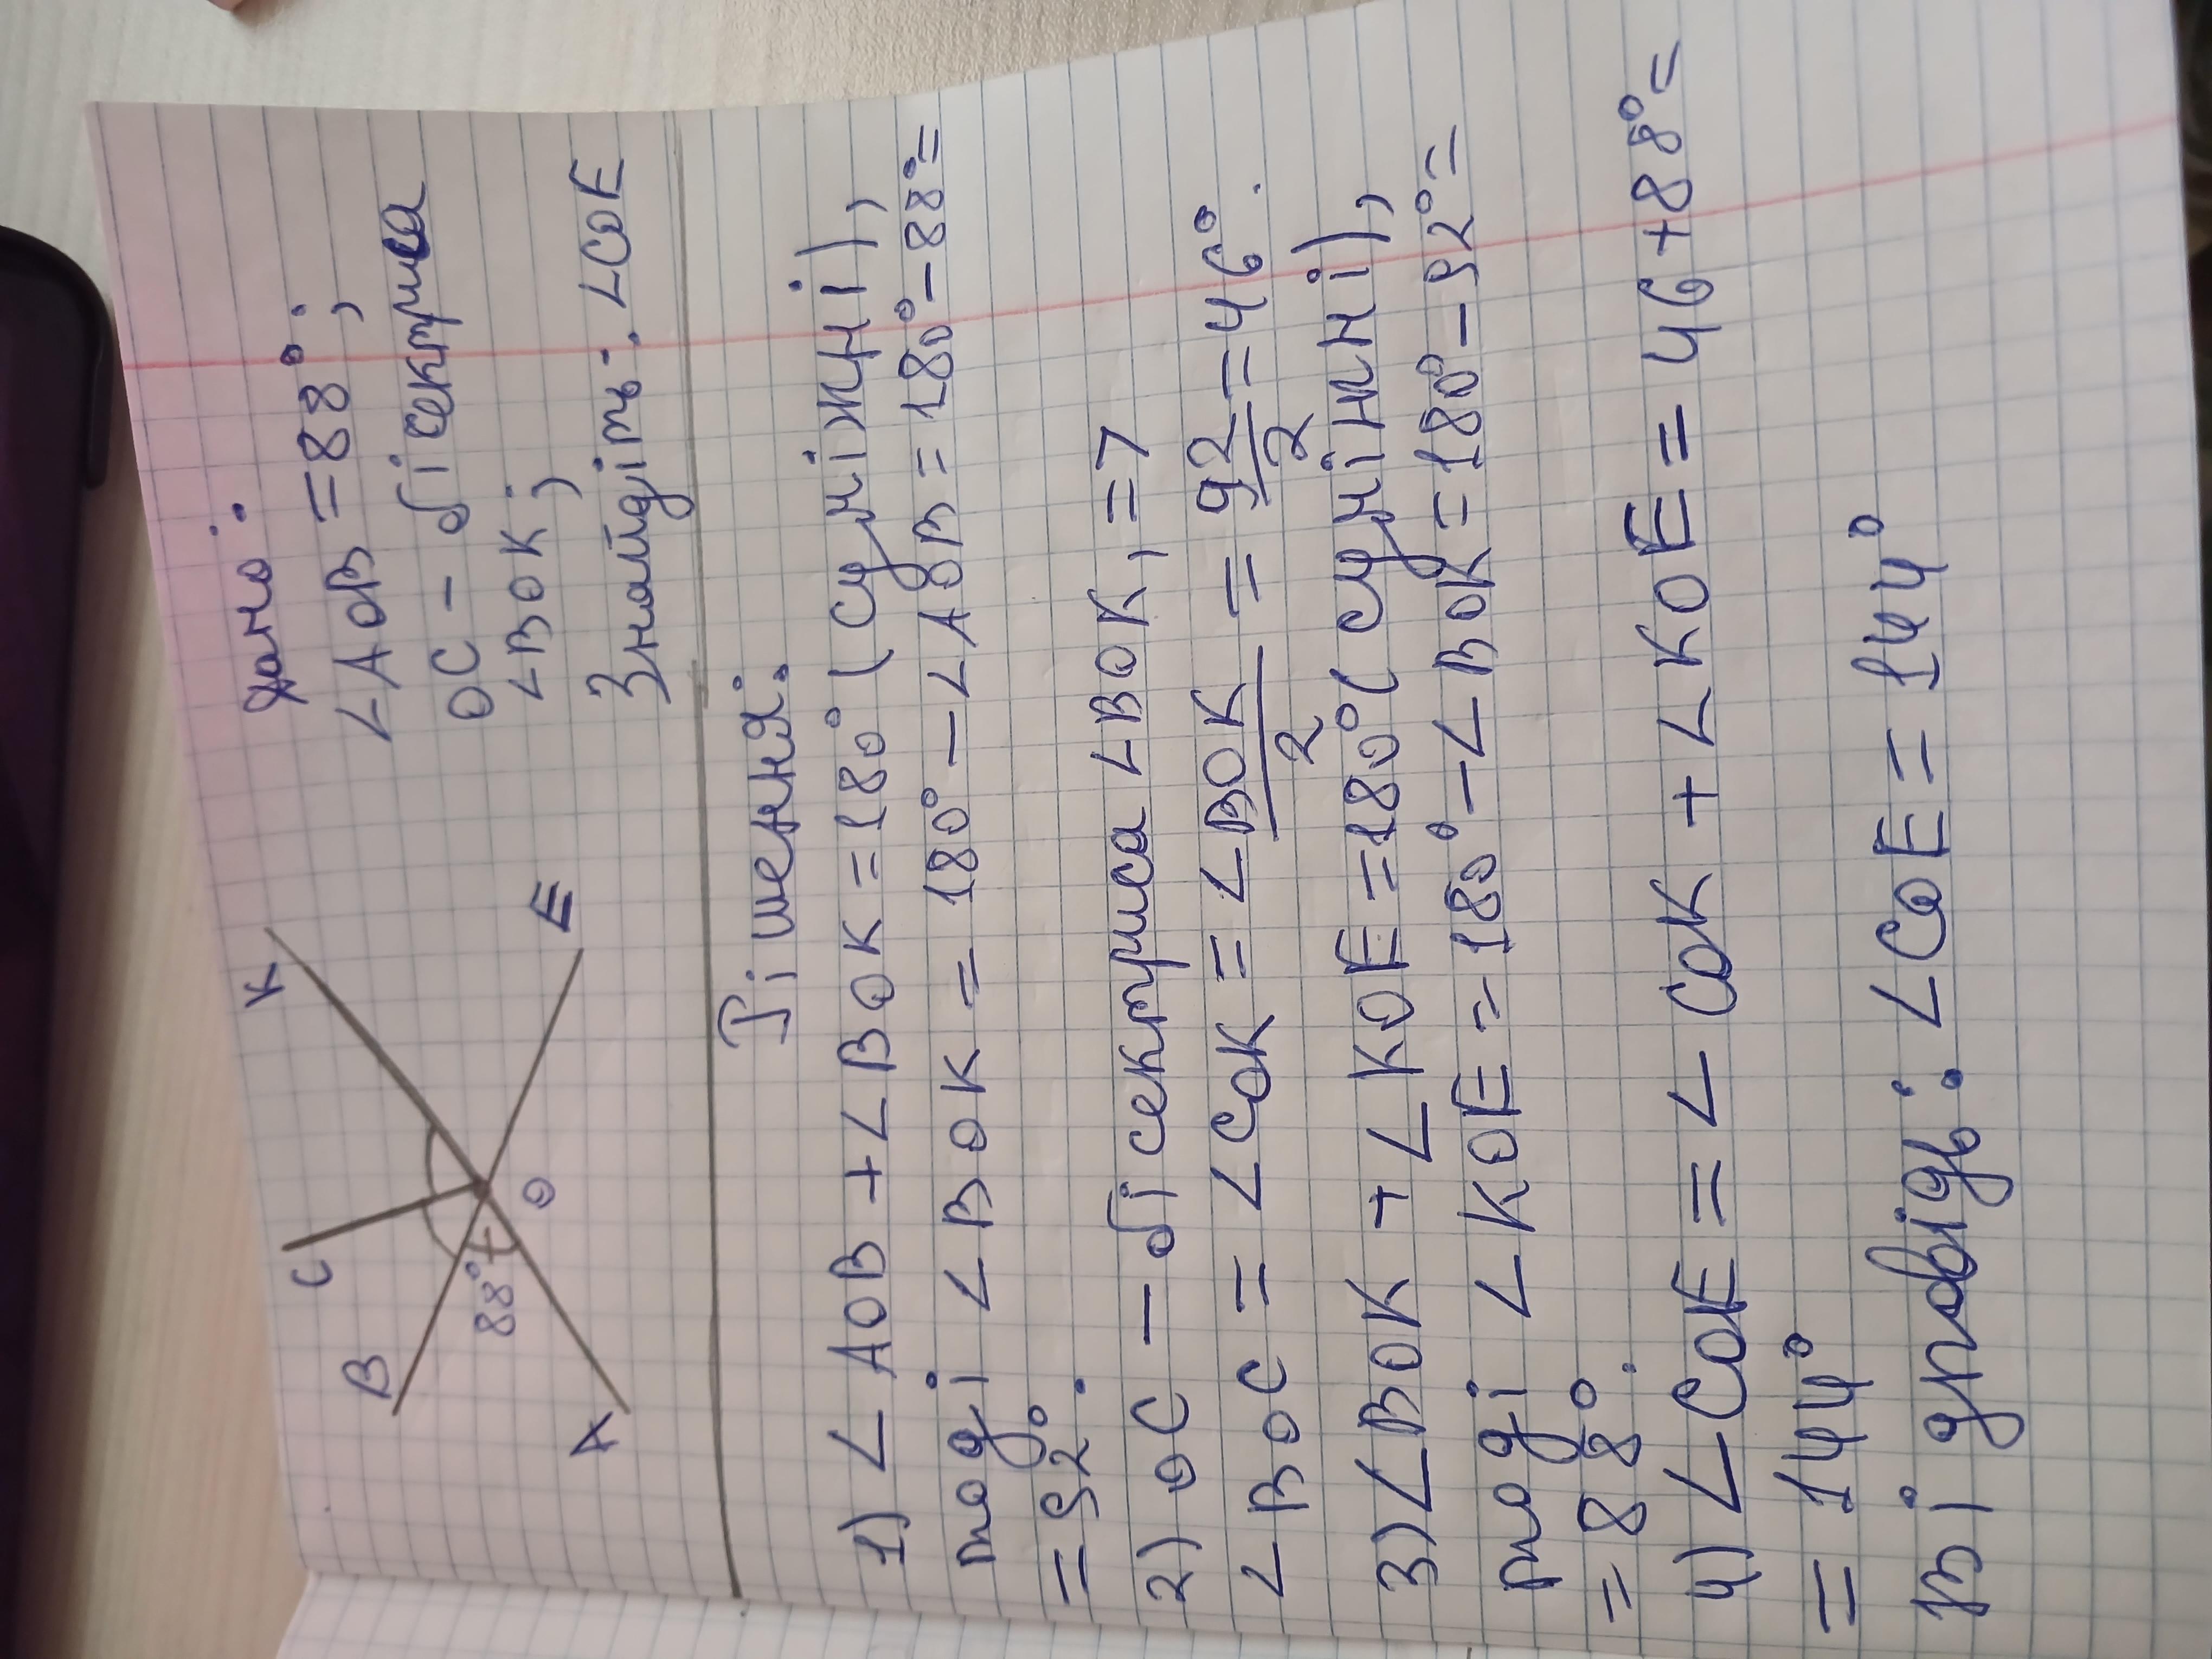 Дано:
∠AOB = 88°;
OC - бісектриса
∠BOK;
Знайдіть: ∠COE
K
C
B
88°
O
E
A
Рішення:
1) ∠AOB + ∠BOK = 180° (суміжні),
тоді ∠BOK = 180° - ∠AOB = 180° - 88° =
= 92°.
2) OC - бісектриса ∠BOK, =>
∠BOC = ∠COK = ∠BOK/2 = 92/2 = 46°.
3) ∠BOK + ∠KOE = 180° (суміжні),
тоді ∠KOE = 180° - ∠BOK = 180° - 92° =
= 88°.
4) ∠COE = ∠COK + ∠KOE = 46 + 88° =
= 144°
Відповідь: ∠COE = 144°